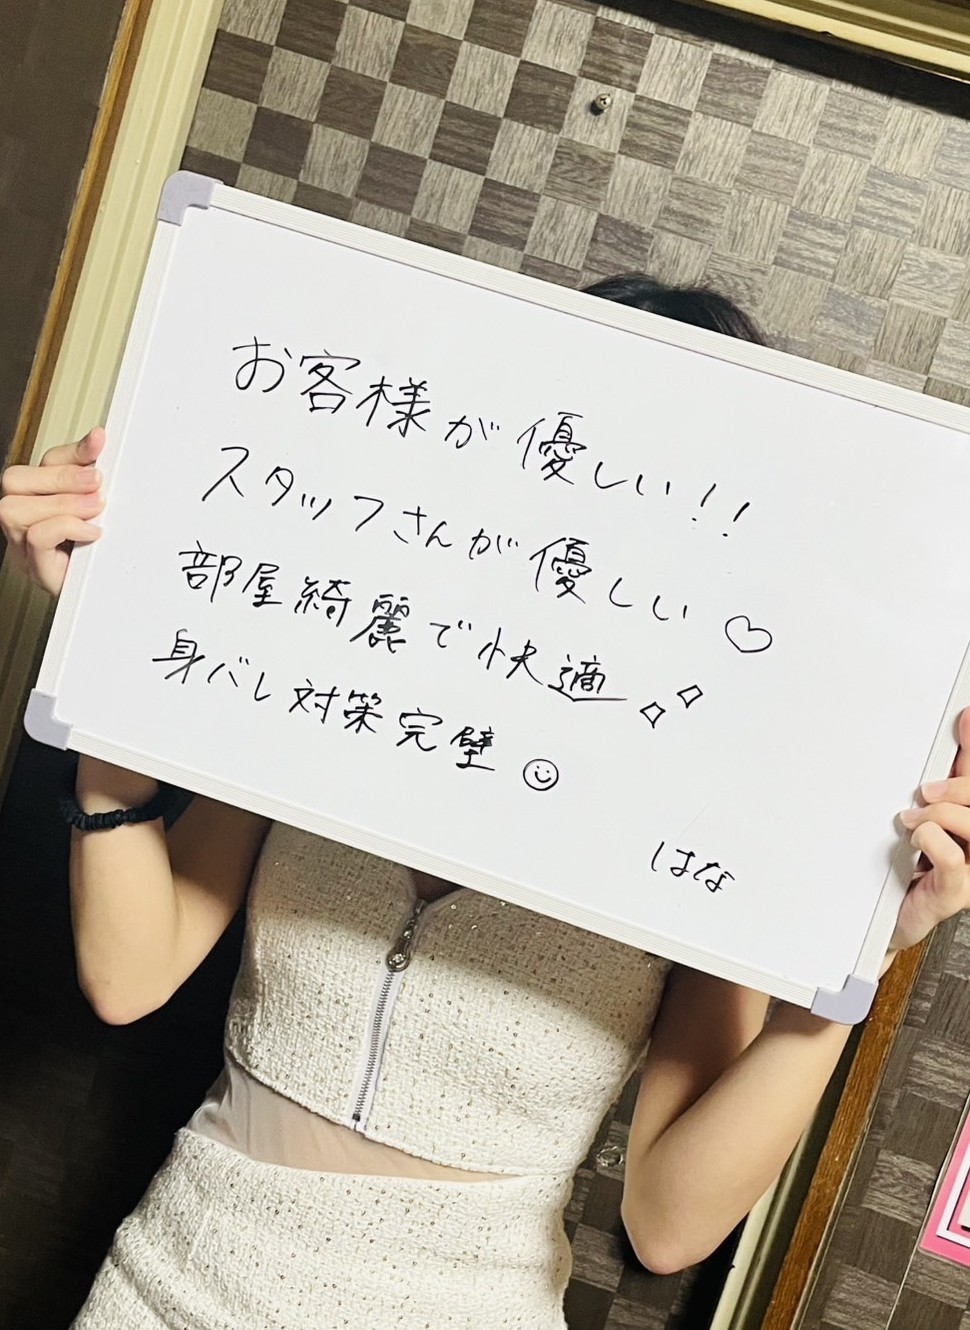 お客様が優しい!!
スタッフさんが優しい♡
部屋綺麗で快適
身バレ対策完壁
はな